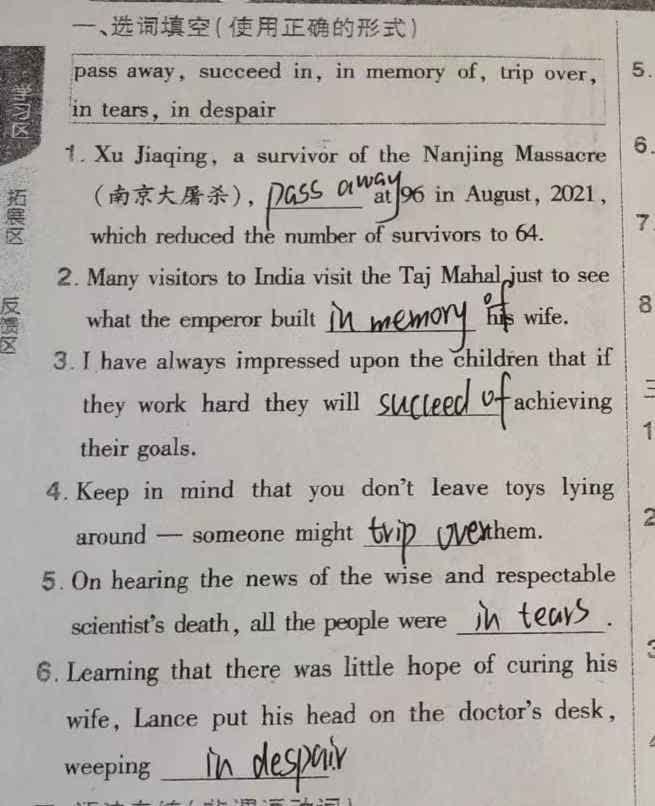 一、选词填空(使用正确的形式)
pass away, succeed in, in memory of, trip over,
in tears, in despair
学习区
拓展区
反馈区
1. Xu Jiaqing, a survivor of the Nanjing Massacre
(南京大屠杀), pass away at 96 in August, 2021,
which reduced the number of survivors to 64.
2. Many visitors to India visit the Taj Mahal just to see
what the emperor built in memory of his wife.
3. I have always impressed upon the children that if
they work hard they will succeed of achieving
their goals.
4. Keep in mind that you don't leave toys lying
around — someone might trip over them.
5. On hearing the news of the wise and respectable
scientist's death, all the people were in tears.
6. Learning that there was little hope of curing his
wife, Lance put his head on the doctor's desk,
weeping in despair
5.
6.
7
8
1
2